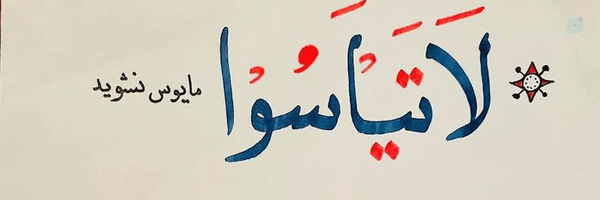 لَا تَيْأَسُوْا مایوس نشوید